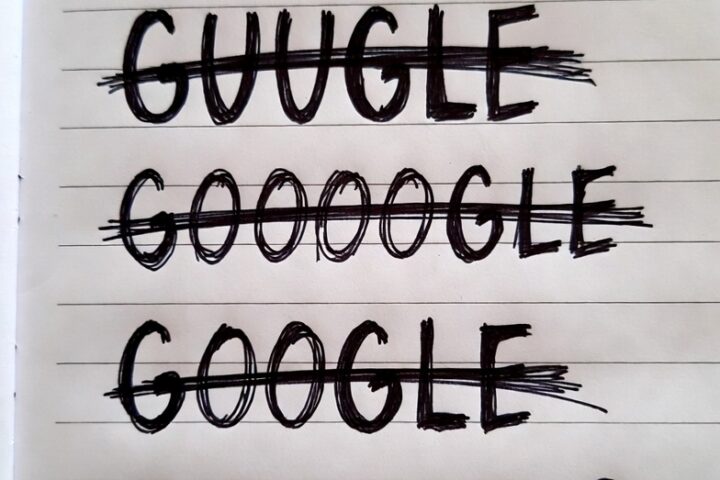 GUUGLE
GOOOOGLE
GOOGLE